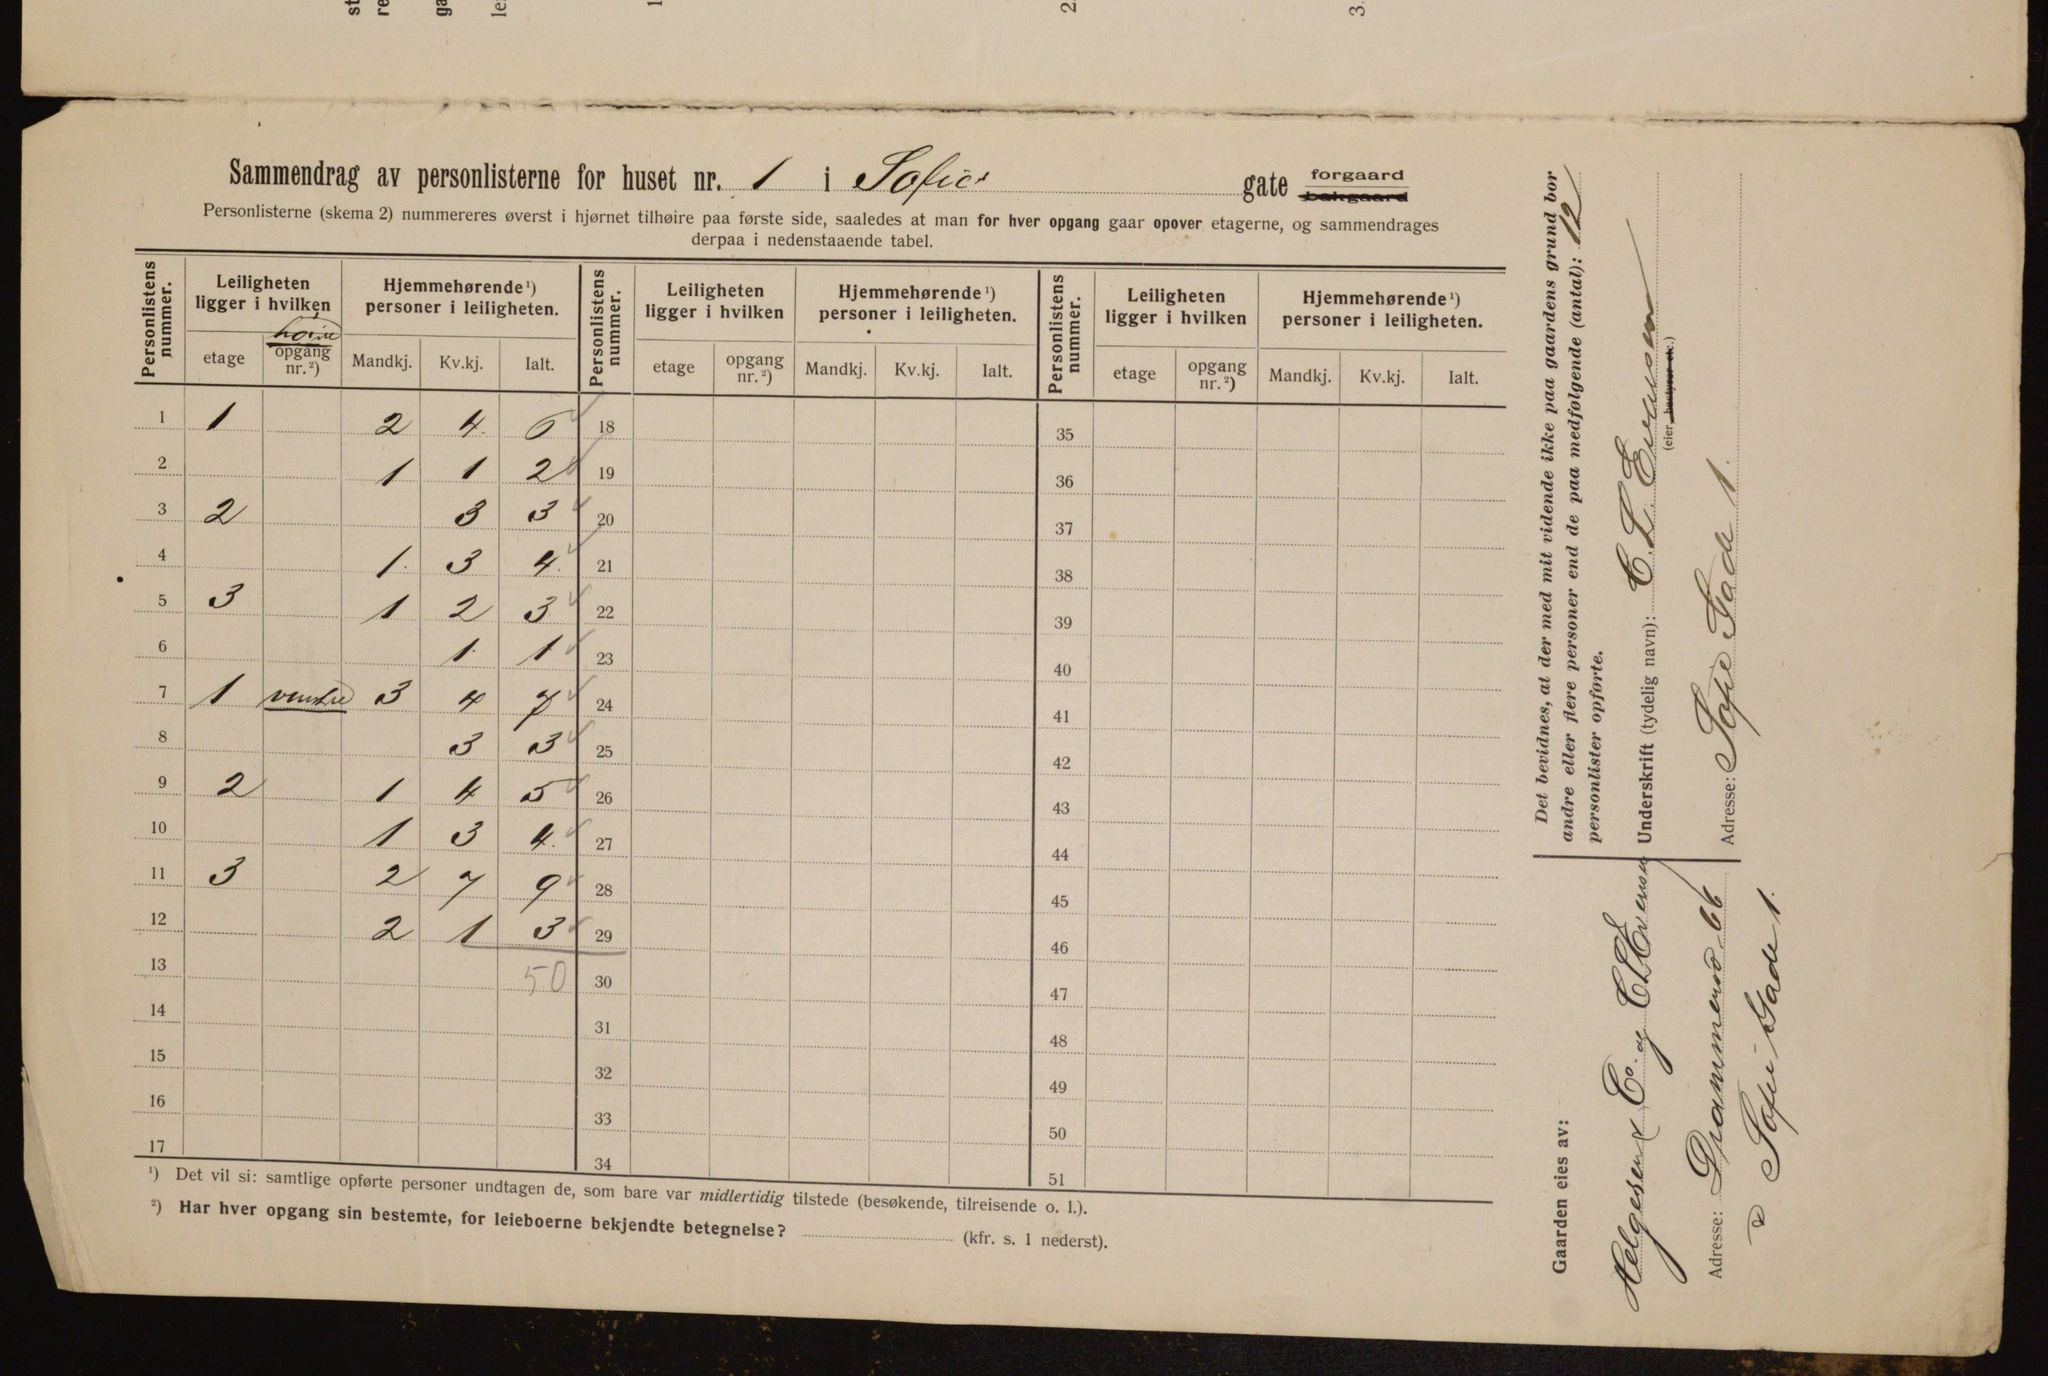 Sammendrag av personlisterne for huset nr. 1 i Sofies gate forgaard bakgaard
Personlisterne (skema 2) nummereres øverst i hjørnet tilhøire paa første side, saaledes at man for hver opgang gaar opover etagerne, og sammendrages
derpaa i nedenstaaende tabel.
Personlistens nummer. Leiligheten ligger i hvilken Hjemmehørende ¹) personer i leiligheten. Personlistens nummer. Leiligheten ligger i hvilken Hjemmehørende ¹) personer i leiligheten. Personlistens nummer. Leiligheten ligger i hvilken Hjemmehørende ¹) personer i leiligheten.
høire
etage opgang nr. ²) Mandkj. Kv.kj. Ialt. etage opgang nr. ²) Mandkj. Kv.kj. Ialt. etage opgang nr. ²) Mandkj. Kv.kj. Ialt.
1 1 2 4 6 18 35
2 1 1 2 19 36
3 2 3 3 20 37
4 1 3 4 21 38
5 3 1 2 3 22 39
6 1 1 23 40
7 1 venstre 3 4 7 24 41
8 3 3 25 42
9 2 1 4 5 26 43
10 1 3 4 27 44
11 3 2 7 9 28 45
12 2 1 3 29 46
13 50 30 47
14 31 48
15 32 49
16 33 50
17 34 51
¹) Det vil si: samtlige opførte personer undtagen de, som bare var midlertidig tilstede (besøkende, tilreisende o. l.).
²) Har hver opgang sin bestemte, for leieboerne bekjendte betegnelse? (kfr. s. 1 nederst).
Det bevidnes, at der med mit vidende ikke paa gaardens grund bor
andre eller flere personer end de paa medfølgende (antal): 12
personlister opførte.
Underskrift (tydelig navn): C. L. Evensen
(eier bestyrer etc.)
Adresse: Sofie Gade 1.
Gaarden eies av:
Helgesen & Co. og CLEvensen
Adresse: Drammensv 66
Sofie Gade 1.